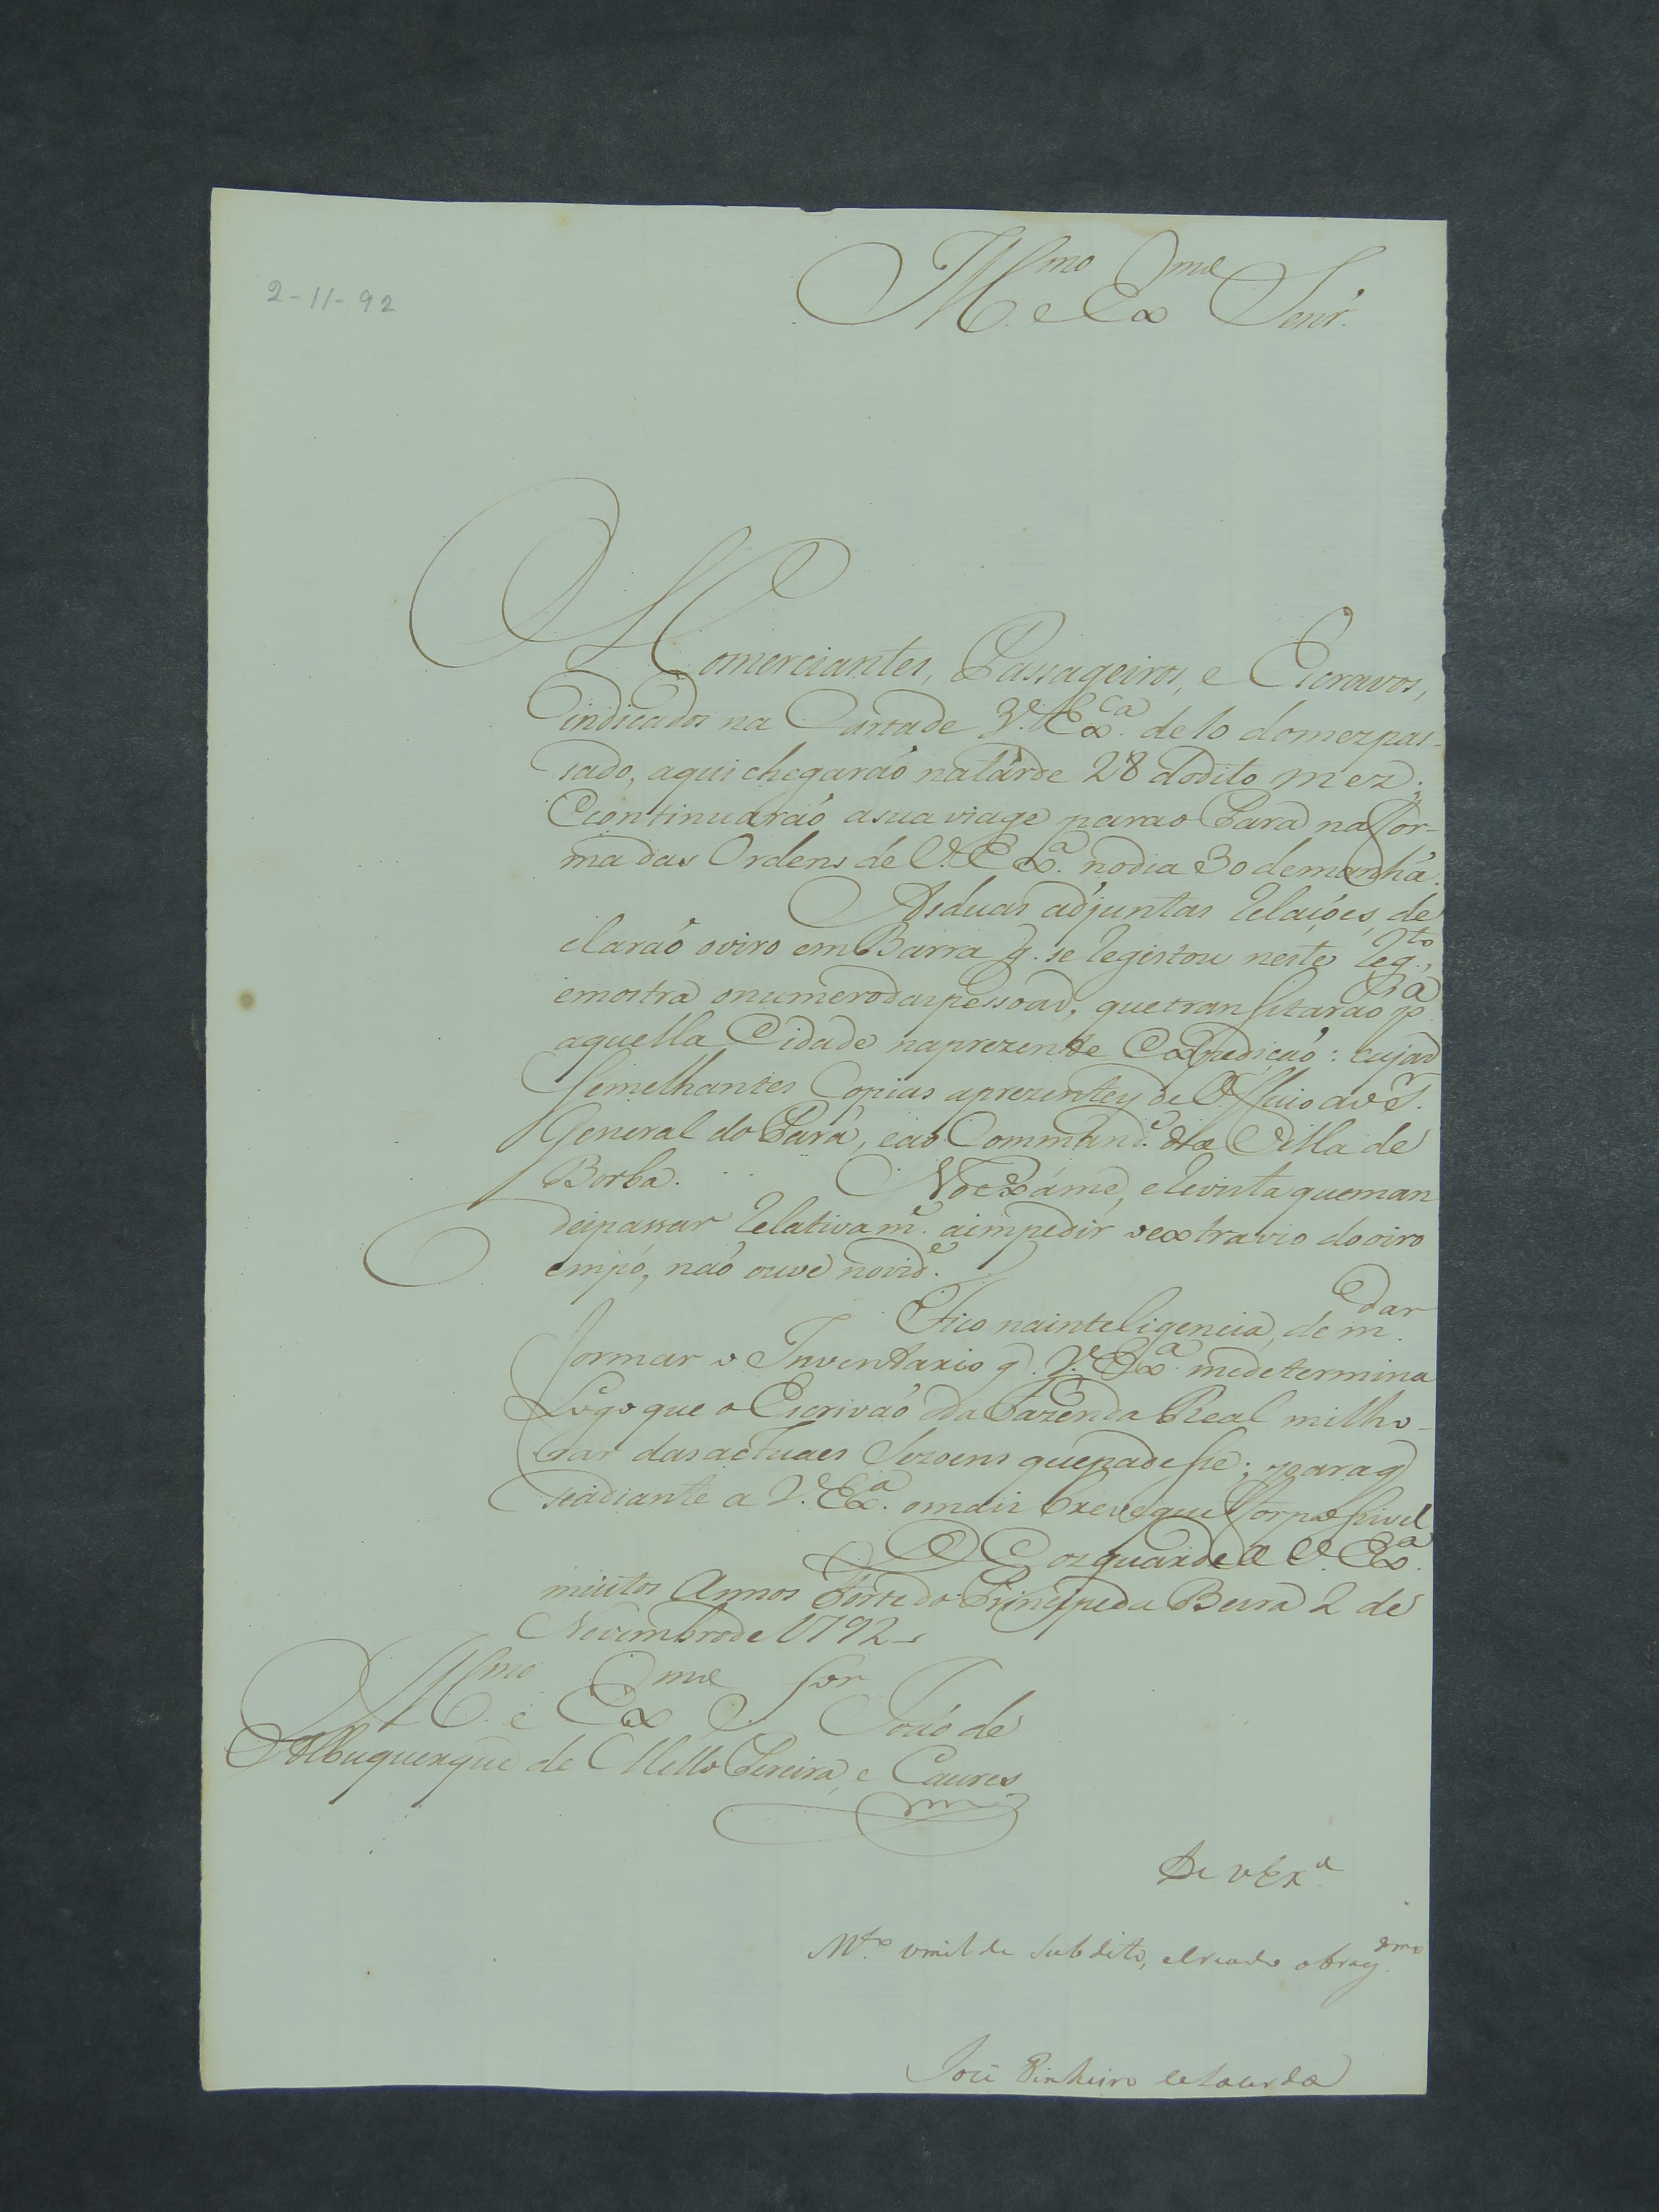 2-11-92
Ill.mo e Ex.mo Senr.
Os Comerciantes, Passageiros, e Escravos,
indicados na Carta de V. Ex.ca de 10 do mez pas-
sado, aqui chegaráo na tarde 28 do dito mez;
E continuaráo a sua viage para o Pará na for-
ma das Ordens de V. Ex.a no dia 30 de manhã.
As duas adjuntas Relaçóes, de
claráo o oiro em Barra q. se Registou neste Reg.to,
e mostra o numero das pessoas, que transitaráo p.a
aquella Cidade na prezente Expediçáo: cujas
Semelhantes Copias aprezentey de Officio ao S.r
General do Pará, e ao Command.e da Villa de
Borba. No Exáme, e Revista que man
dei passar Relativam.e a impedir o extravio do oiro
em pó, náo ouve novid.e
Fico na inteligencia, de m.dar
formar o Inventario q. V. Ex.a me determina
Logo que o Escriváo da Fazenda Real milho-
rar das actuaes Sezoens que padesse; para q
se adiante a V. Ex.a o mais breve que for possivel
D.s guarde a V. Ex.a
muitos Annos Forte do Principe da Beira 2 de
Novembro de 1792
Ill.mo e Ex.mo Snor Joáo de
Albuquerque de Mello Pereira, e Caceres
De V Ex.a
M.to umilde Subdito, e Criado obrig.dmo
José Pinheiro de Lacerda